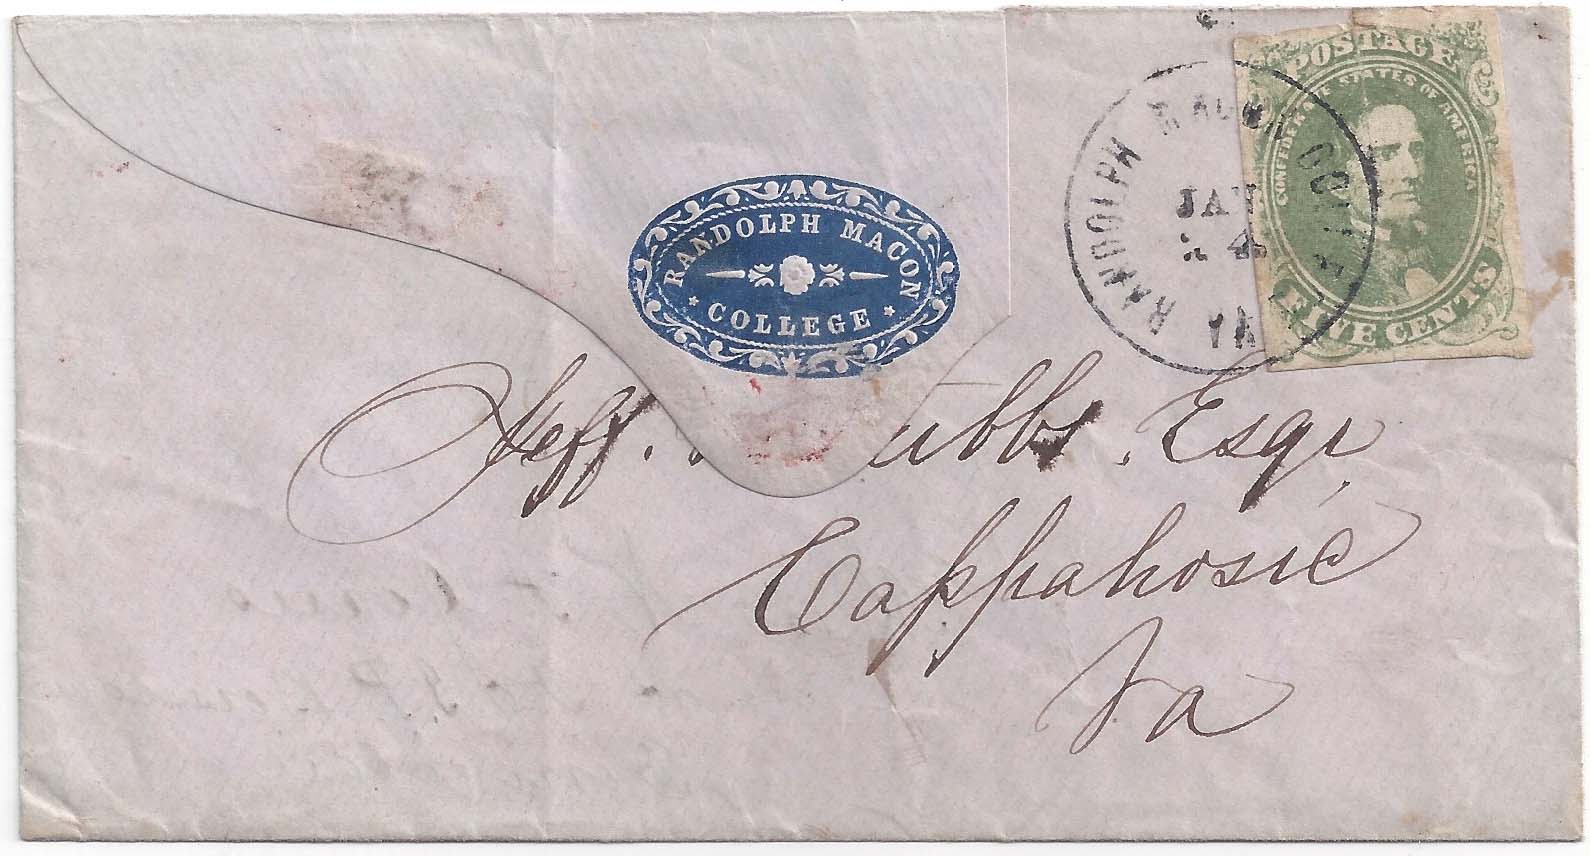 POSTAGE
CONFEDERATE STATES OF AMERICA
FIVE CENTS
RANDOLPH MACON COLLEGE
JAN
VA
RANDOLPH MACON
COLLEGE
Jeff. Esqr
Cappahosic
Va